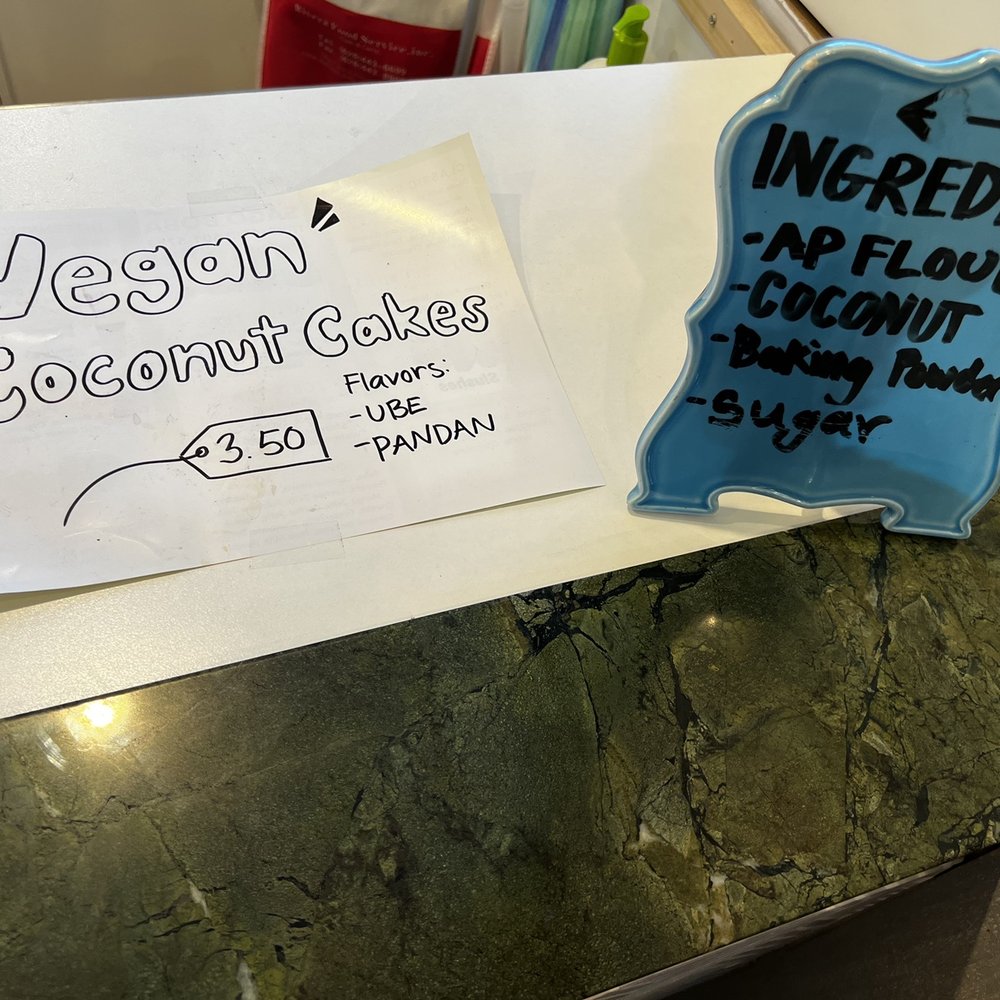 Vegan
Coconut Cakes
Flavors:
-UBE
-PANDAN
3.50
INGRED
-AP FLOU
-COCONUT
-Baking Powder
-sugar